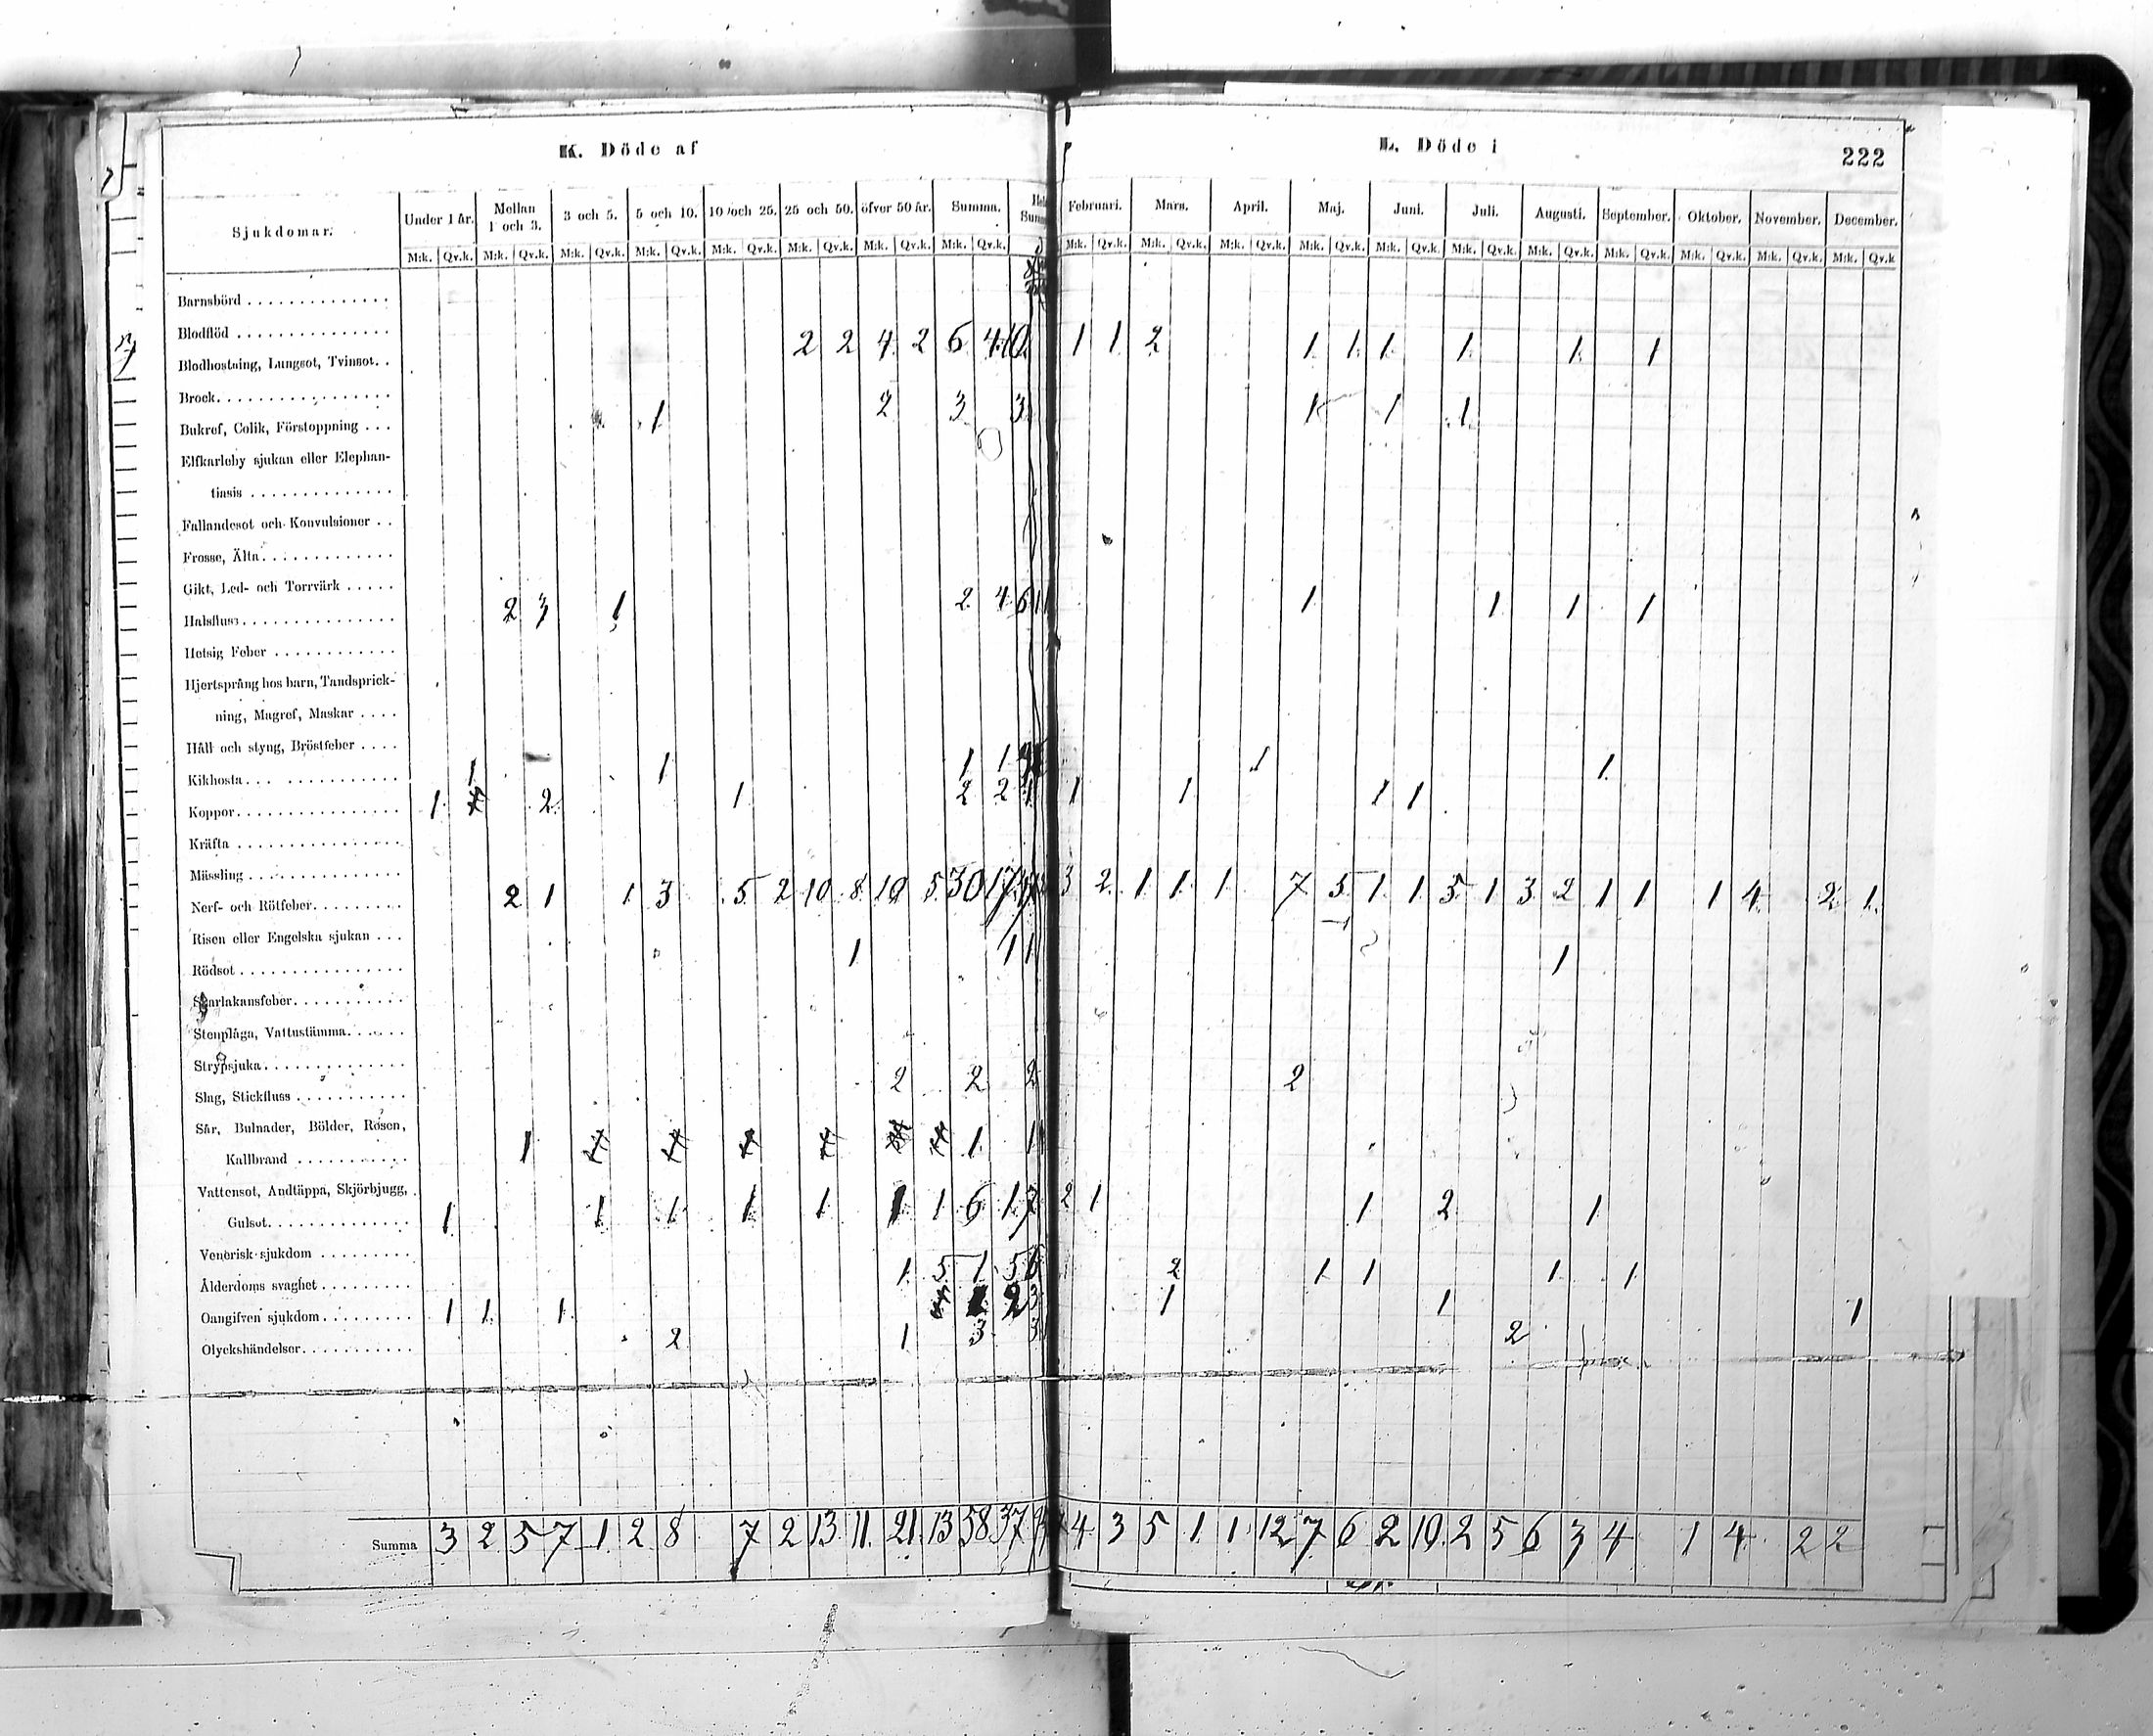 K. Döde af
L. Döde i
222
Sjukdomar. Under 1 år. Mellan 1 och 3. 3 och 5. 5 och 10. 10 och 25. 25 och 50. öfver 50 år. Summa. Februari. Mars. April. Maj. Juni. Juli. Augusti. September. Oktober. November. December.
M:k. Qv.k. M:k. Qv.k. M:k. Qv.k. M:k. Qv.k. M:k. Qv.k. M:k. Qv.k. M:k. Qv.k. M:k. Qv.k. M:k. Qv.k. M:k. Qv.k. M:k. Qv.k. M:k. Qv.k. M:k. Qv.k. M:k. Qv.k. M:k. Qv.k. M:k. Qv.k. M:k. Qv.k. M:k. Qv.k. M:k. Qv.k
Barnsbörd
Blodflöd
Blodhostning, Lungsot, Tvinsot. 2 2 4 2 6 4 10 1 1 2 1 1 1 1 1 1
Brock
Bukref, Colik, Förstoppning 1 2 3 3 1 1 1
Elfkarleby sjukan eller Elephan-
tiasis
Fallandesot och Konvulsioner
Frosse, Älta
Gikt, Led- och Torrvärk
Halsfluss 2 3 1 2 4 6 1 1 1 1
Hetsig Feber
Hjertsprång hos barn, Tandsprick-
ning, Magref, Maskar
Håll och styng, Bröstfeber
Kikhosta 1 1 1 1 1 1
Koppor 1 2 1 2 2 1 1 1 1
Kräfta
Mässling
Nerf- och Rötfeber 2 1 1 3 5 2 10 8 10 5 30 17 3 2 1 1 1 7 5 1 1 5 1 3 2 1 1 1 4 2 1
Risen eller Engelska sjukan
Rödsot 1 1 1 1
Skarlakansfeber
Stenplåga, Vattustämma
Strypsjuka
Slag, Stickfluss 2 2 2 2
Sår, Bulnader, Bölder, Rosen,
Kallbrand 1 1 1
Vattensot, Andtäppa, Skjörbjugg,
Gulsot 1 1 1 1 1 1 1 6 1 7 2 1 1 2 1
Venerisk sjukdom
Ålderdoms svaghet 1 5 1 5 6 2 1 1 1 1
Oangifven sjukdom 1 1 1 2 3 1 1 1
Olyckshändelser 2 1 3 3 2
Summa 3 2 5 7 1 2 8 7 2 13 11 21 13 58 37 4 3 5 1 1 12 7 6 2 10 2 5 6 3 4 1 4 2 2